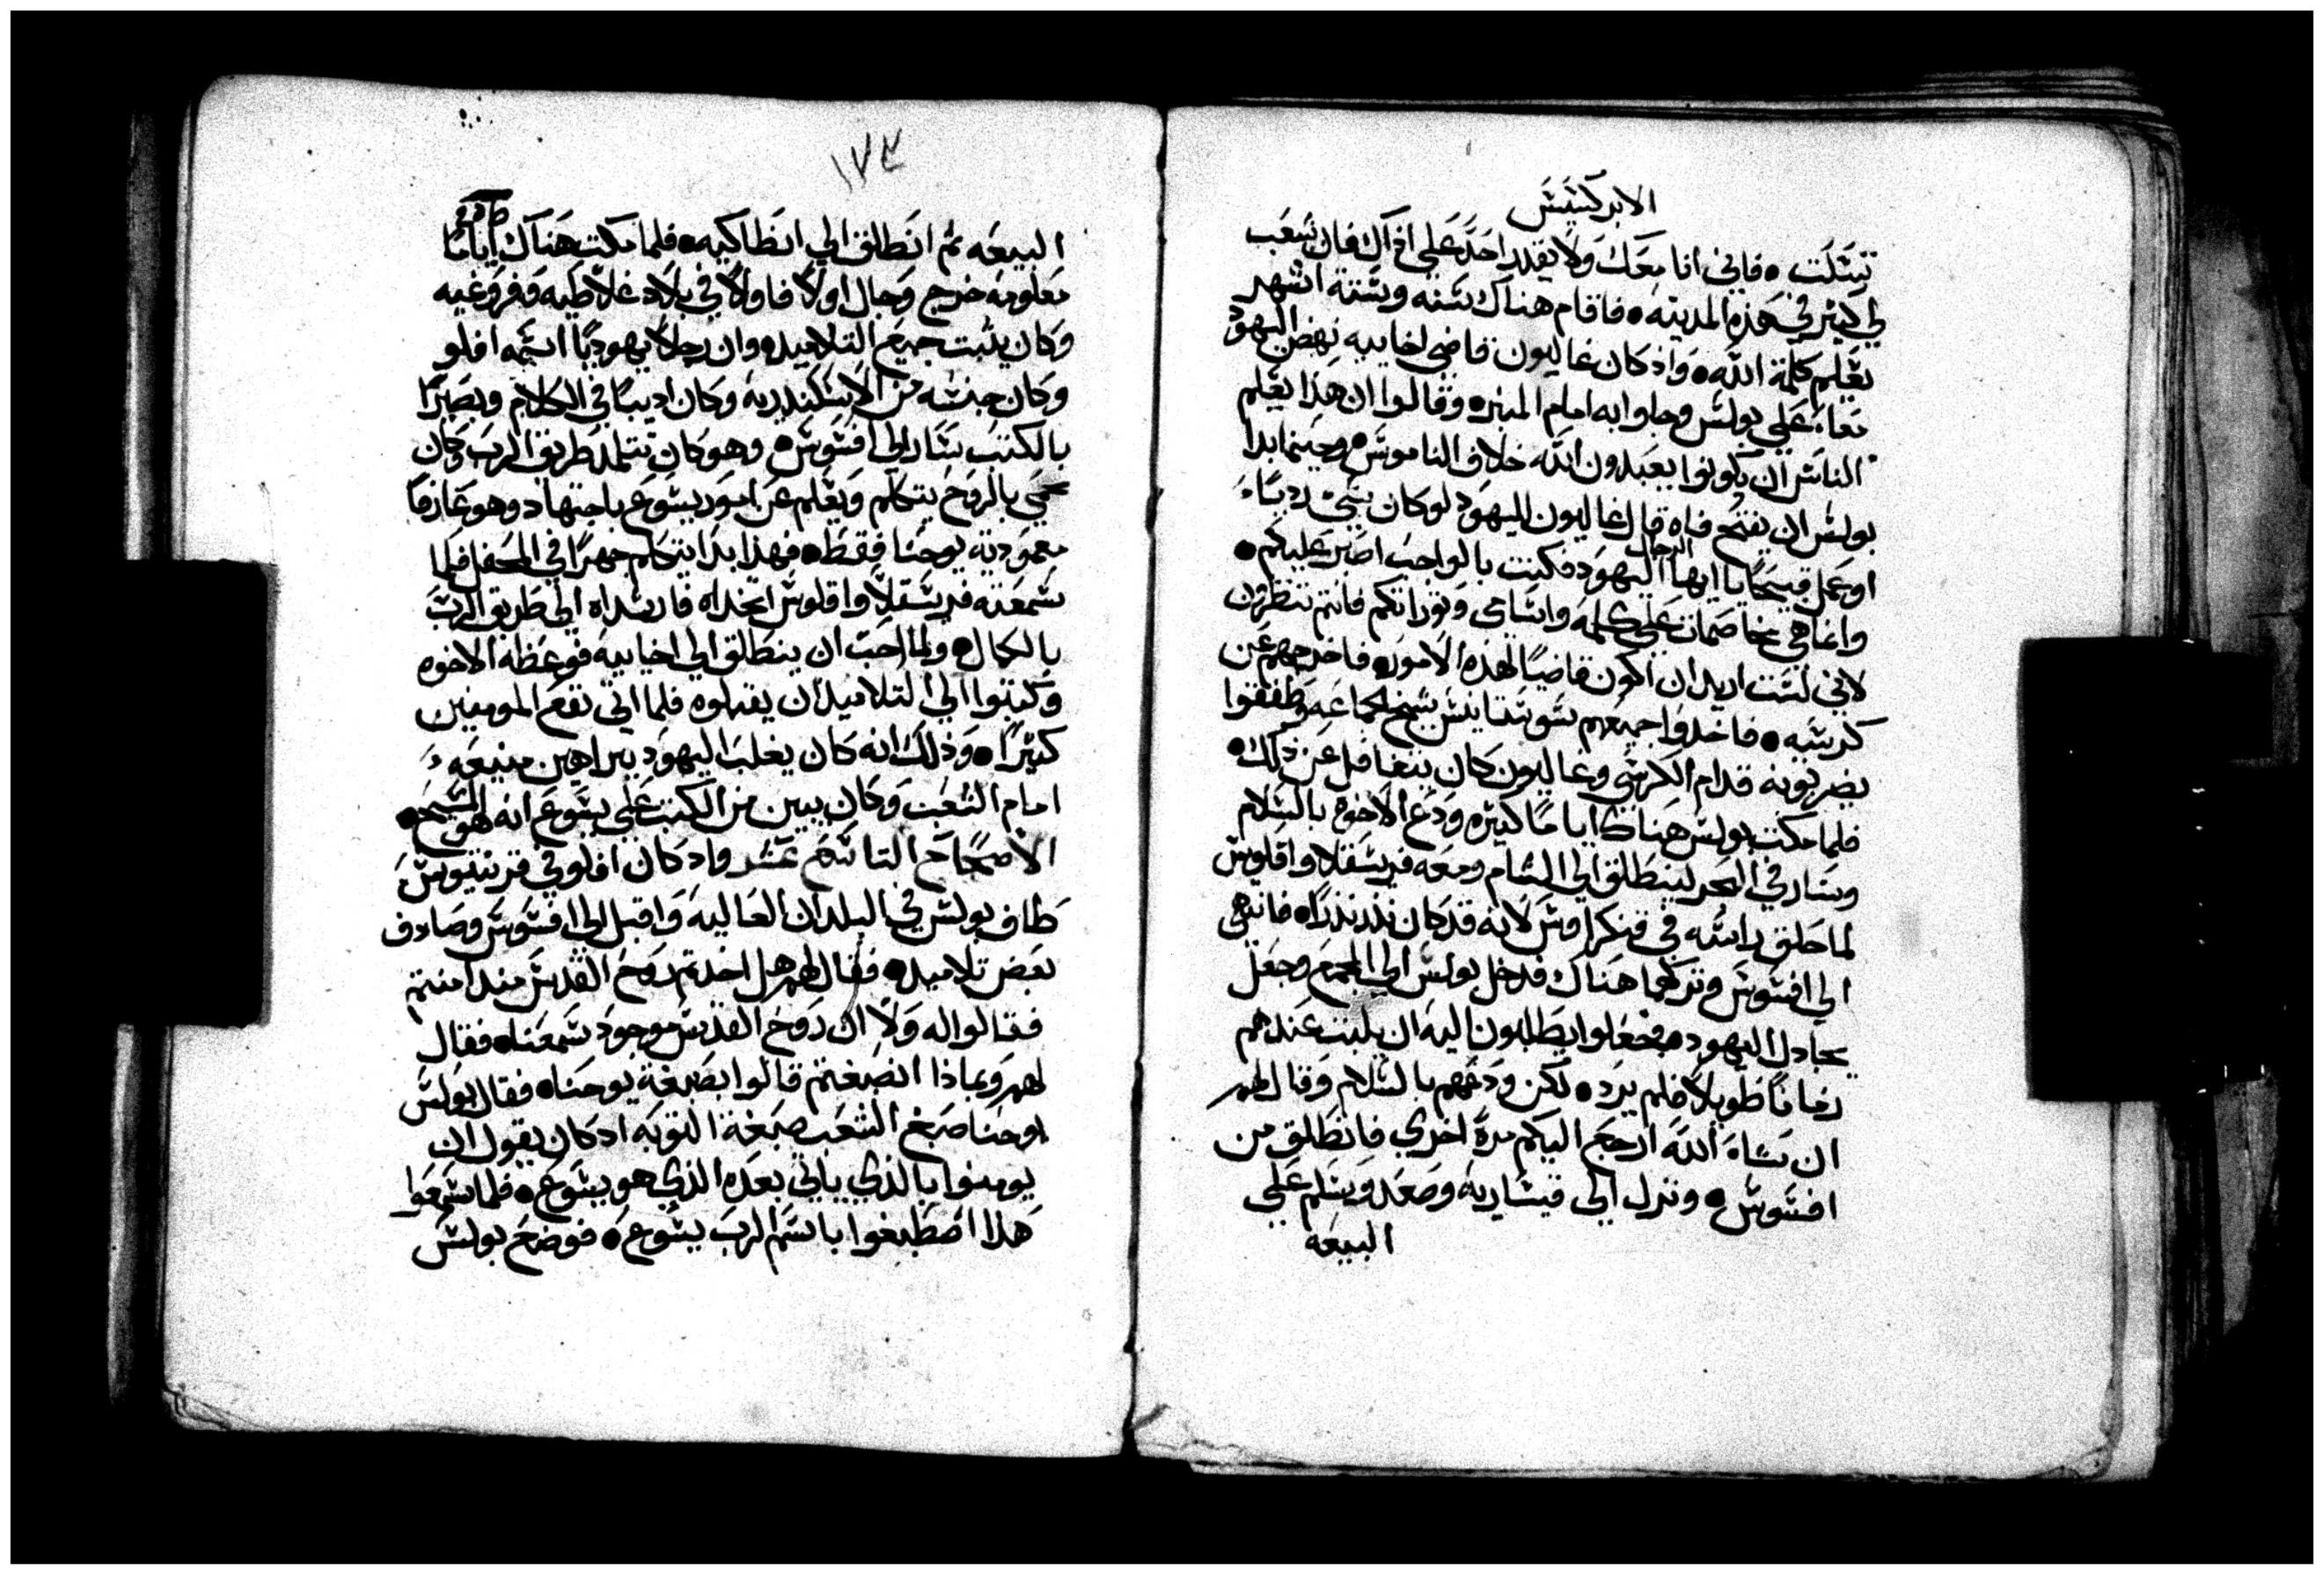 الابركسيس
تسكت • فاني انا معك ولا يقدر احد علي اذاك فان شعب
لي كثير في هذه المدينه • فاقام هناك سنه وستة اشهر
يعلم كلمة الله • واذ كان غاليون قاضي اخاييه نهض اليهود
معا علي بولس وجاوا به امام المنبر • وقالوا ان هذا يعلم
الناس ان يكونوا يعبدون الله خلاف الناموس • وحينما بدا
بولس ان يفتح فاه قال غاليون لليهود لوكان شي ردياء
او عمل قبيحا يا ايها الرجال اليهود فكنت بالواجب اصبر عليكم •
وانما هي مخاصمات علي كلمه واسامي وتوراتكم فانتم تنظرون
لاني لست اريد ان اكون قاضيا لهذه الامور • فاخرجهم عن
كرسيه • فاخدوا جميعهم سوستانيس شيخ الجماعه وطفقوا
يضربونه قدام الكرسي وغاليون كان يتغافل عن ذلك •
فلما مكت بولس هناك اياما كتيره ودع الاخوه بالسلام
وسار في البحر لينطلق الي الشام ومعه فريسقلا واقلوس
لما حلق راسه في قنكراوس لانه قد كان نذر نذرا • فانتهي
الي افسوس وتركهما هناك فدخل بولس الي المجمع وجعل
يجادل اليهود • فجعلوا يطلبون اليه ان يلبت عندهم
زمانا طويلا فلم يرد • لكن ودعهم بالسلام وقال لهم
ان شاء الله ارجع اليكم مرة اخري فانطلق من
افسوس • ونزل الي قيساريه وصعد وسلم علي
البيعه
١٧٣
البيعه تم انطلق الي انطاكيه • فلما مكت هناك اياما
معلومه خرج وجال اولا فاولا في بلاد غلاطيه وفروغيه
وكان يثبت جميع التلاميد • وان رجلا يهوديا اسمه افلو
وكان جنسه من الاسكندريه وكان اديبا في الكلام وبصيرا
بالكتب سار الي افسوس • وهو كان تتلمد طريق الرب وكان
يحمي بالروح يتكلم ويعلم عن امور يسوع باجتهاد وهو عارفا
معمودية يوحنا فقط • فهذا بدا يتكلم جهرا في المحفل فلما
سمعته فريسقلا واقلوس اتخداه فارشداه الي طريق الرب
بالكمال • ولما احب ان ينطلق الي اخاييه فوعظه الاخوه
وكتبوا الي التلاميد ان يقبلوه فلما اتي نفع المومنين
كتيرا • وذلك انه كان يغلب اليهود ببراهين منيعه
امام الشعب وكان يبين من الكتب علي يسوع انه هو المسيح •
الاصحاح التاسع عشر واد كان افلو في قرنتيوس
طاف بولس في البلدان العاليه واقبل الي افسوس وصادف
بعض تلاميد • فقال لهم هل اخدتم روح القدس مند امنتم
فقالوا له ولا ان روح القدس موجود سمعنا • فقال
لهم وبماذا انصبغتم قالوا بصبغة يوحنا • فقال بولس
يوحنا صبغ الشعب صبغة التوبه اد كان يقول ان
يومنوا بالذي ياتي بعده الذي هو يسوع • فلما سمعوا
هدا اصطبغوا باسم الرب يسوع • فوضع بولس